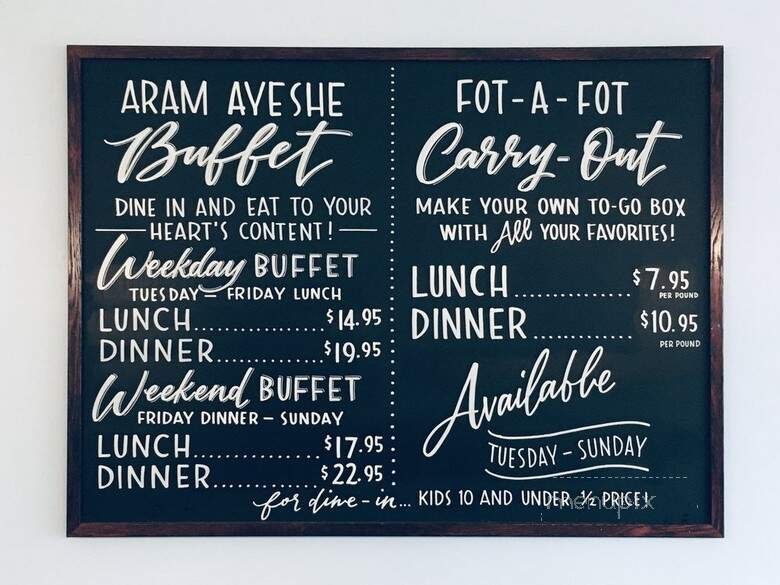 ARAM AYESHE
Buffet
DINE IN AND EAT TO YOUR
HEART'S CONTENT!
Weekday BUFFET
TUESDAY – FRIDAY LUNCH
LUNCH.............$14.95
DINNER...........$19.95
Weekend BUFFET
FRIDAY DINNER – SUNDAY
LUNCH.............$17.95
DINNER...........$22.95
FOT-A-FOT
Carry-Out
MAKE YOUR OWN TO-GO BOX
WITH All YOUR FAVORITES!
LUNCH.............$7.95
PER POUND
DINNER...........$10.95
PER POUND
Available
TUESDAY – SUNDAY
for dine-in... KIDS 10 AND UNDER ½ PRICE!
menupix